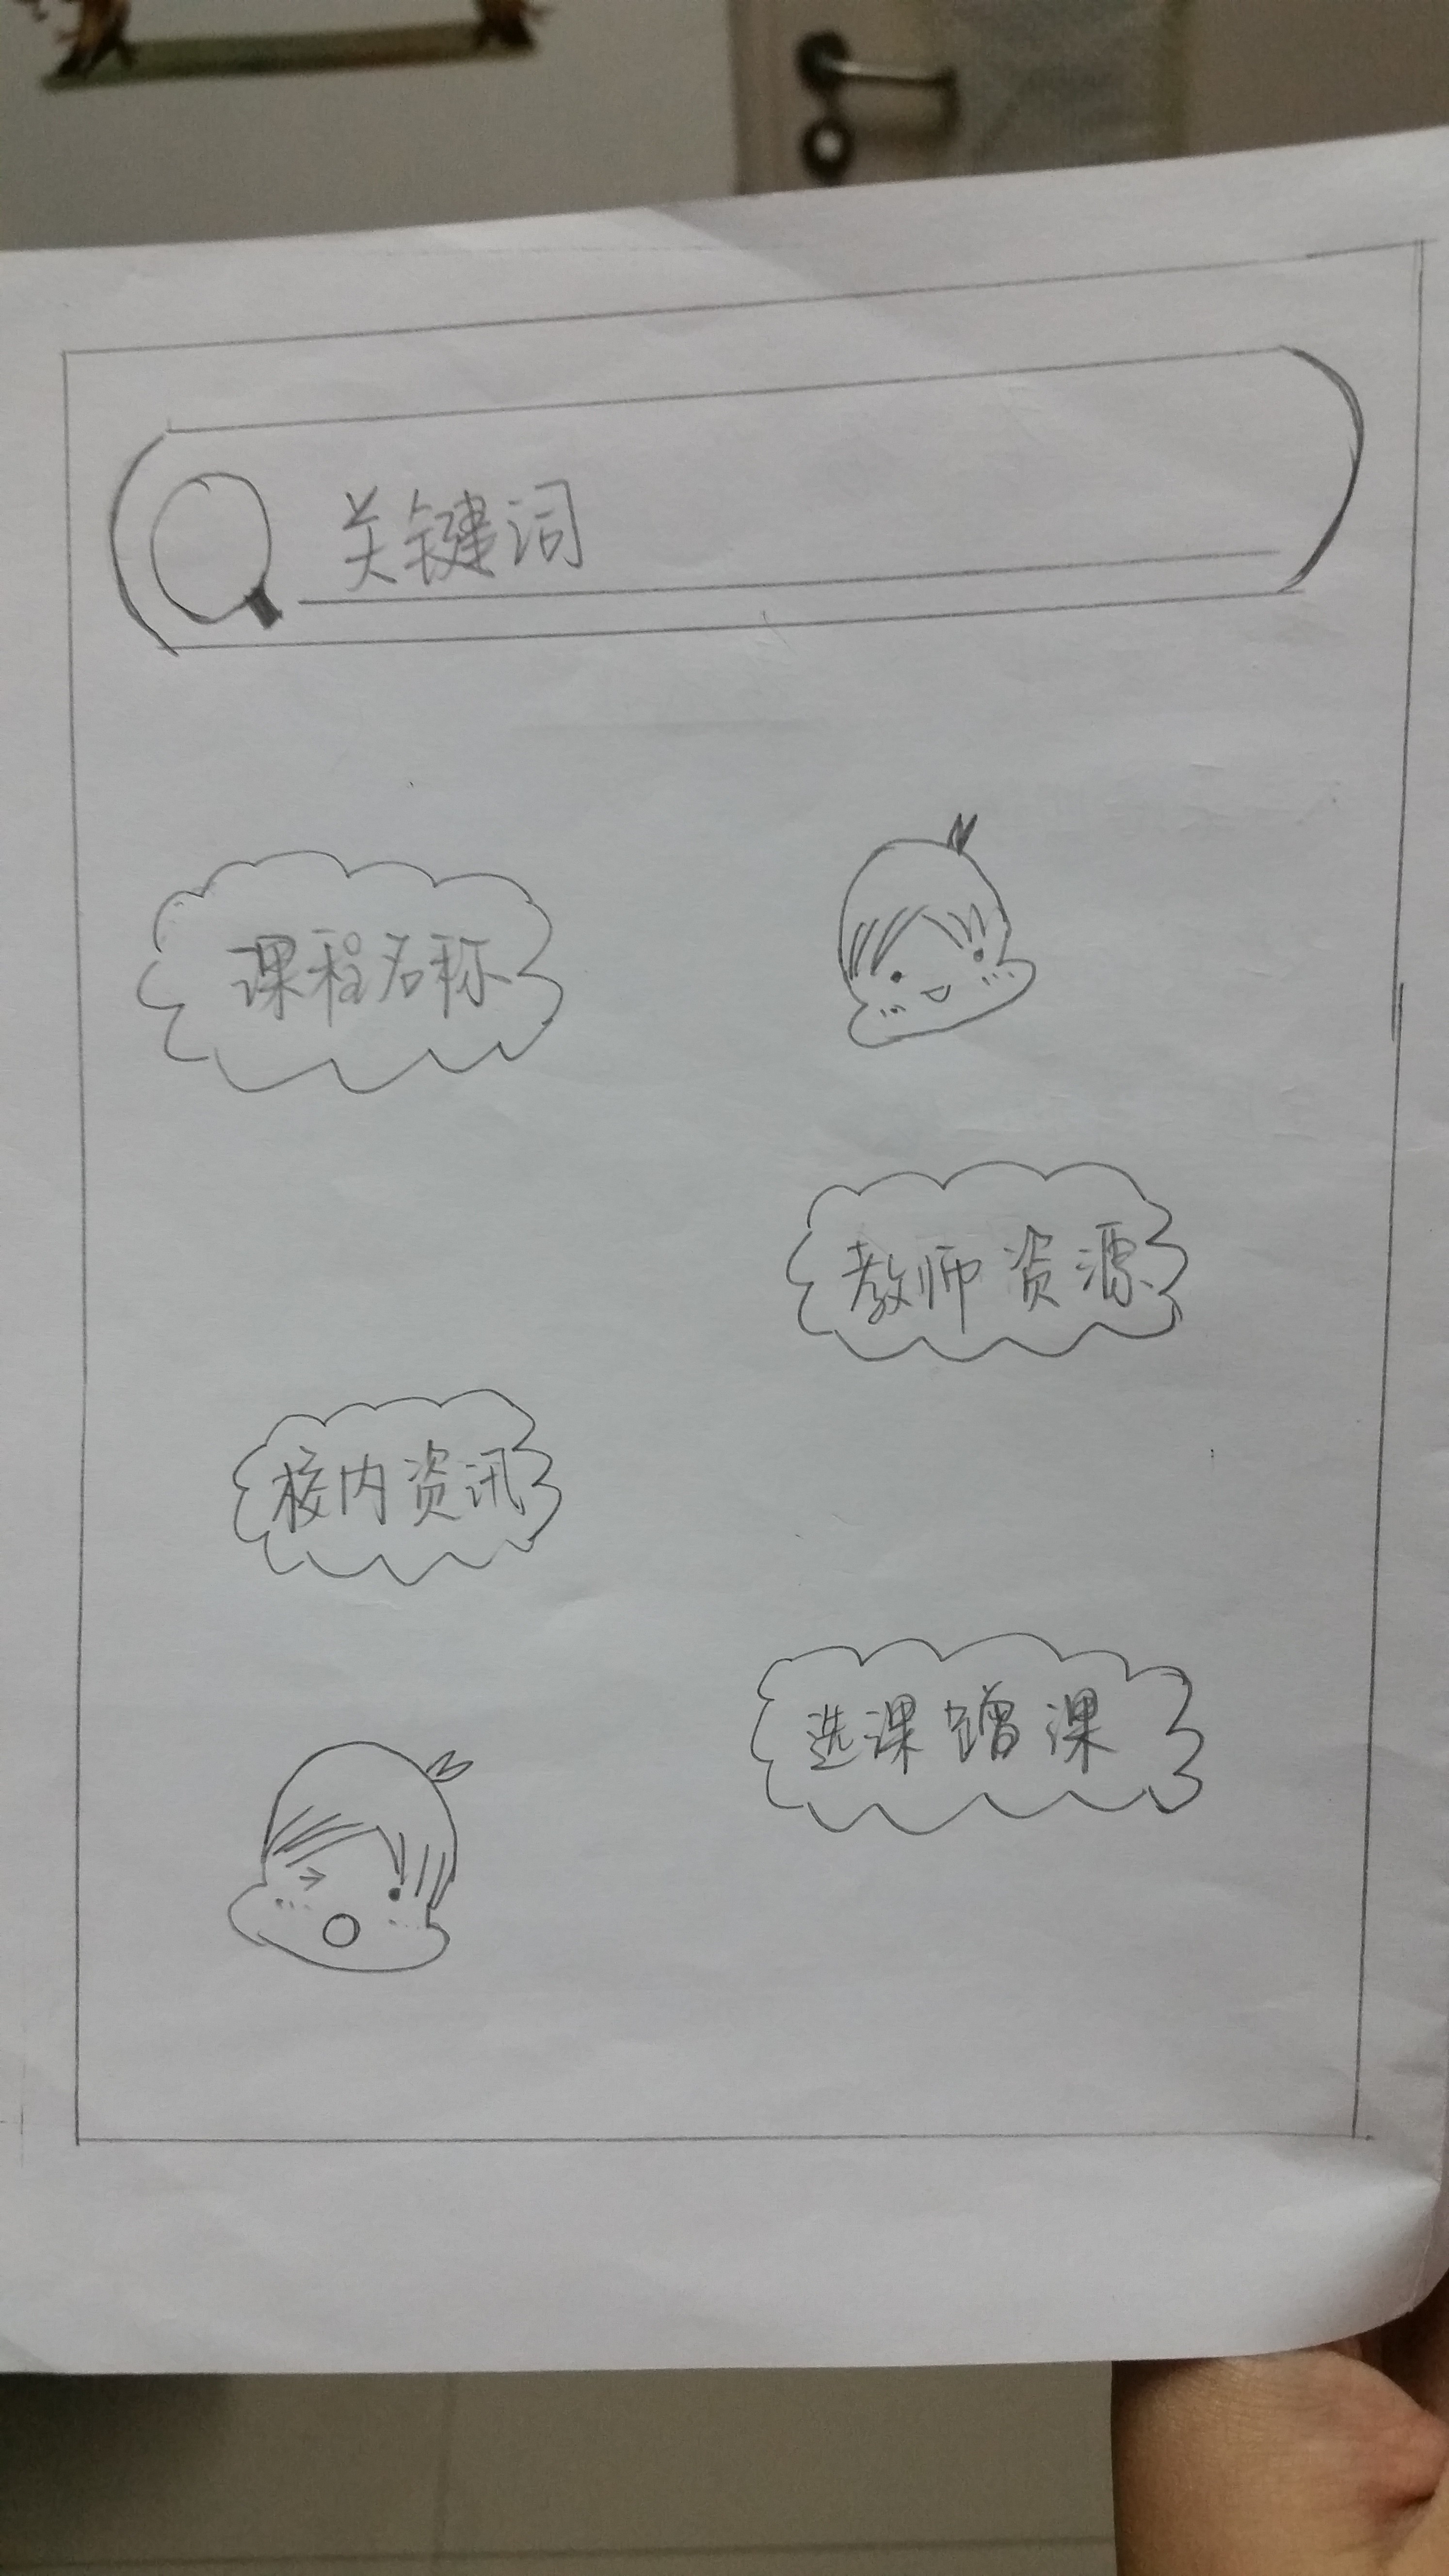 关键词
课程名称
教师资源
校内资讯
选课增课